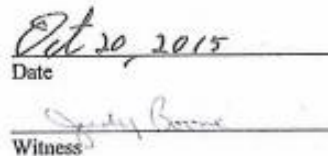 Oct 20, 2015
Date
Judy
Witness